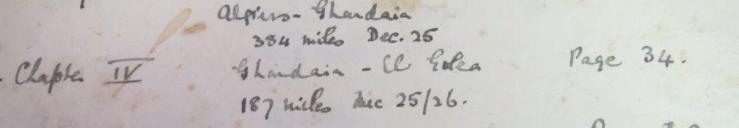 Algiers - Ghardaia
384 miles Dec. 25
Chapter IV Ghardaia - El Golea Page 34.
187 miles Dec 25/26.